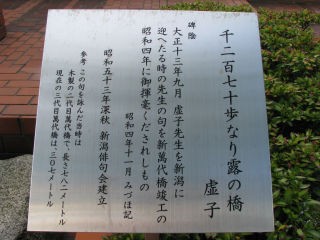 千二百七十歩なり露の橋
虚子
碑陰
大正十三年九月 虚子先生を新潟に
迎へたる時の先生の句を新萬代橋竣工の
昭和四年に御揮毫くだされしもの
昭和四年十一月 みづほ記
昭和五十三年深秋 新潟俳句会建立
参考 この句を詠んだ当時は
木製の二代目萬代橋で、長さ七八二メートル
現在の三代目萬代橋は、三〇七メートル